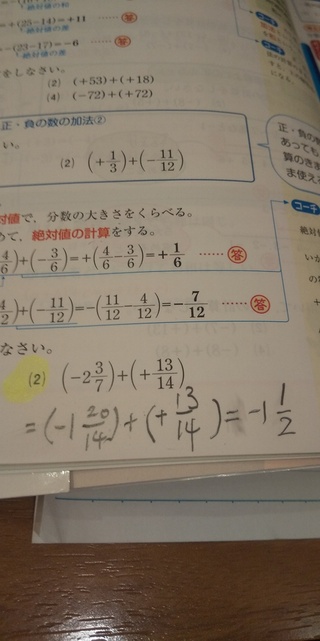 =+(25−14)=+11 ……答
絶対値の差
−(23−17)=−6 ……答
絶対値の差
をしなさい。
(2) (+53)+(+18)
(4) (−72)+(+72)
正・負の数の加法②
い。
(2) (+1/3)+(−11/12)
正・負の
あっても
算のきま
ま使え
対値で、分数の大きさをくらべる。
めて、絶対値の計算をする。
コーチ
4/6)+(−3/6)=+(4/6−3/6)=+1/6 ……答
)+(−11/12)=−(11/12−4/12)=−7/12 ……答
なさい。
(2) (−2 3/7)+(+13/14)
=(−1 20/14)+(+13/14)=−1 1/2